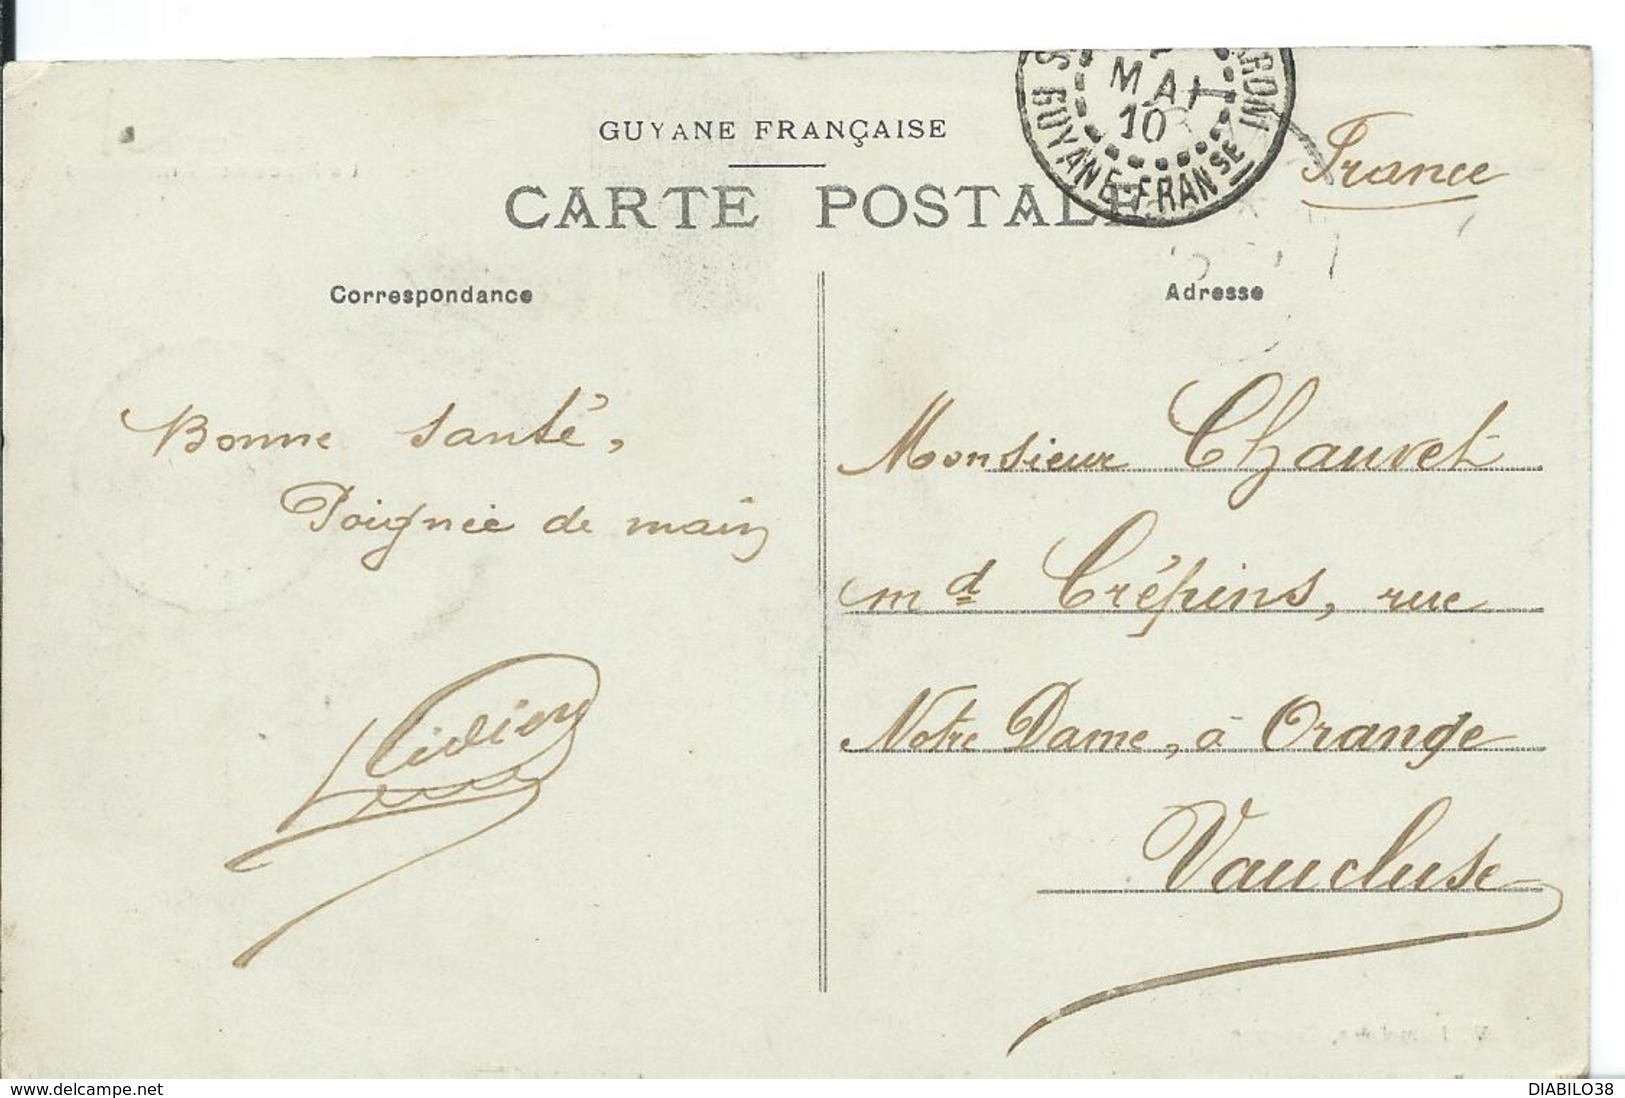 GUYANE FRANÇAISE
CARTE POSTALE
MAI
10
GUYANE-FRANSE
RONI
France
Correspondance
Adresse
Bonne santé,
Poignée de main
Monsieur Chauvet
md Crépins, rue
Notre Dame, à Orange
Vaucluse
www.delcampe.net
DIABILO38